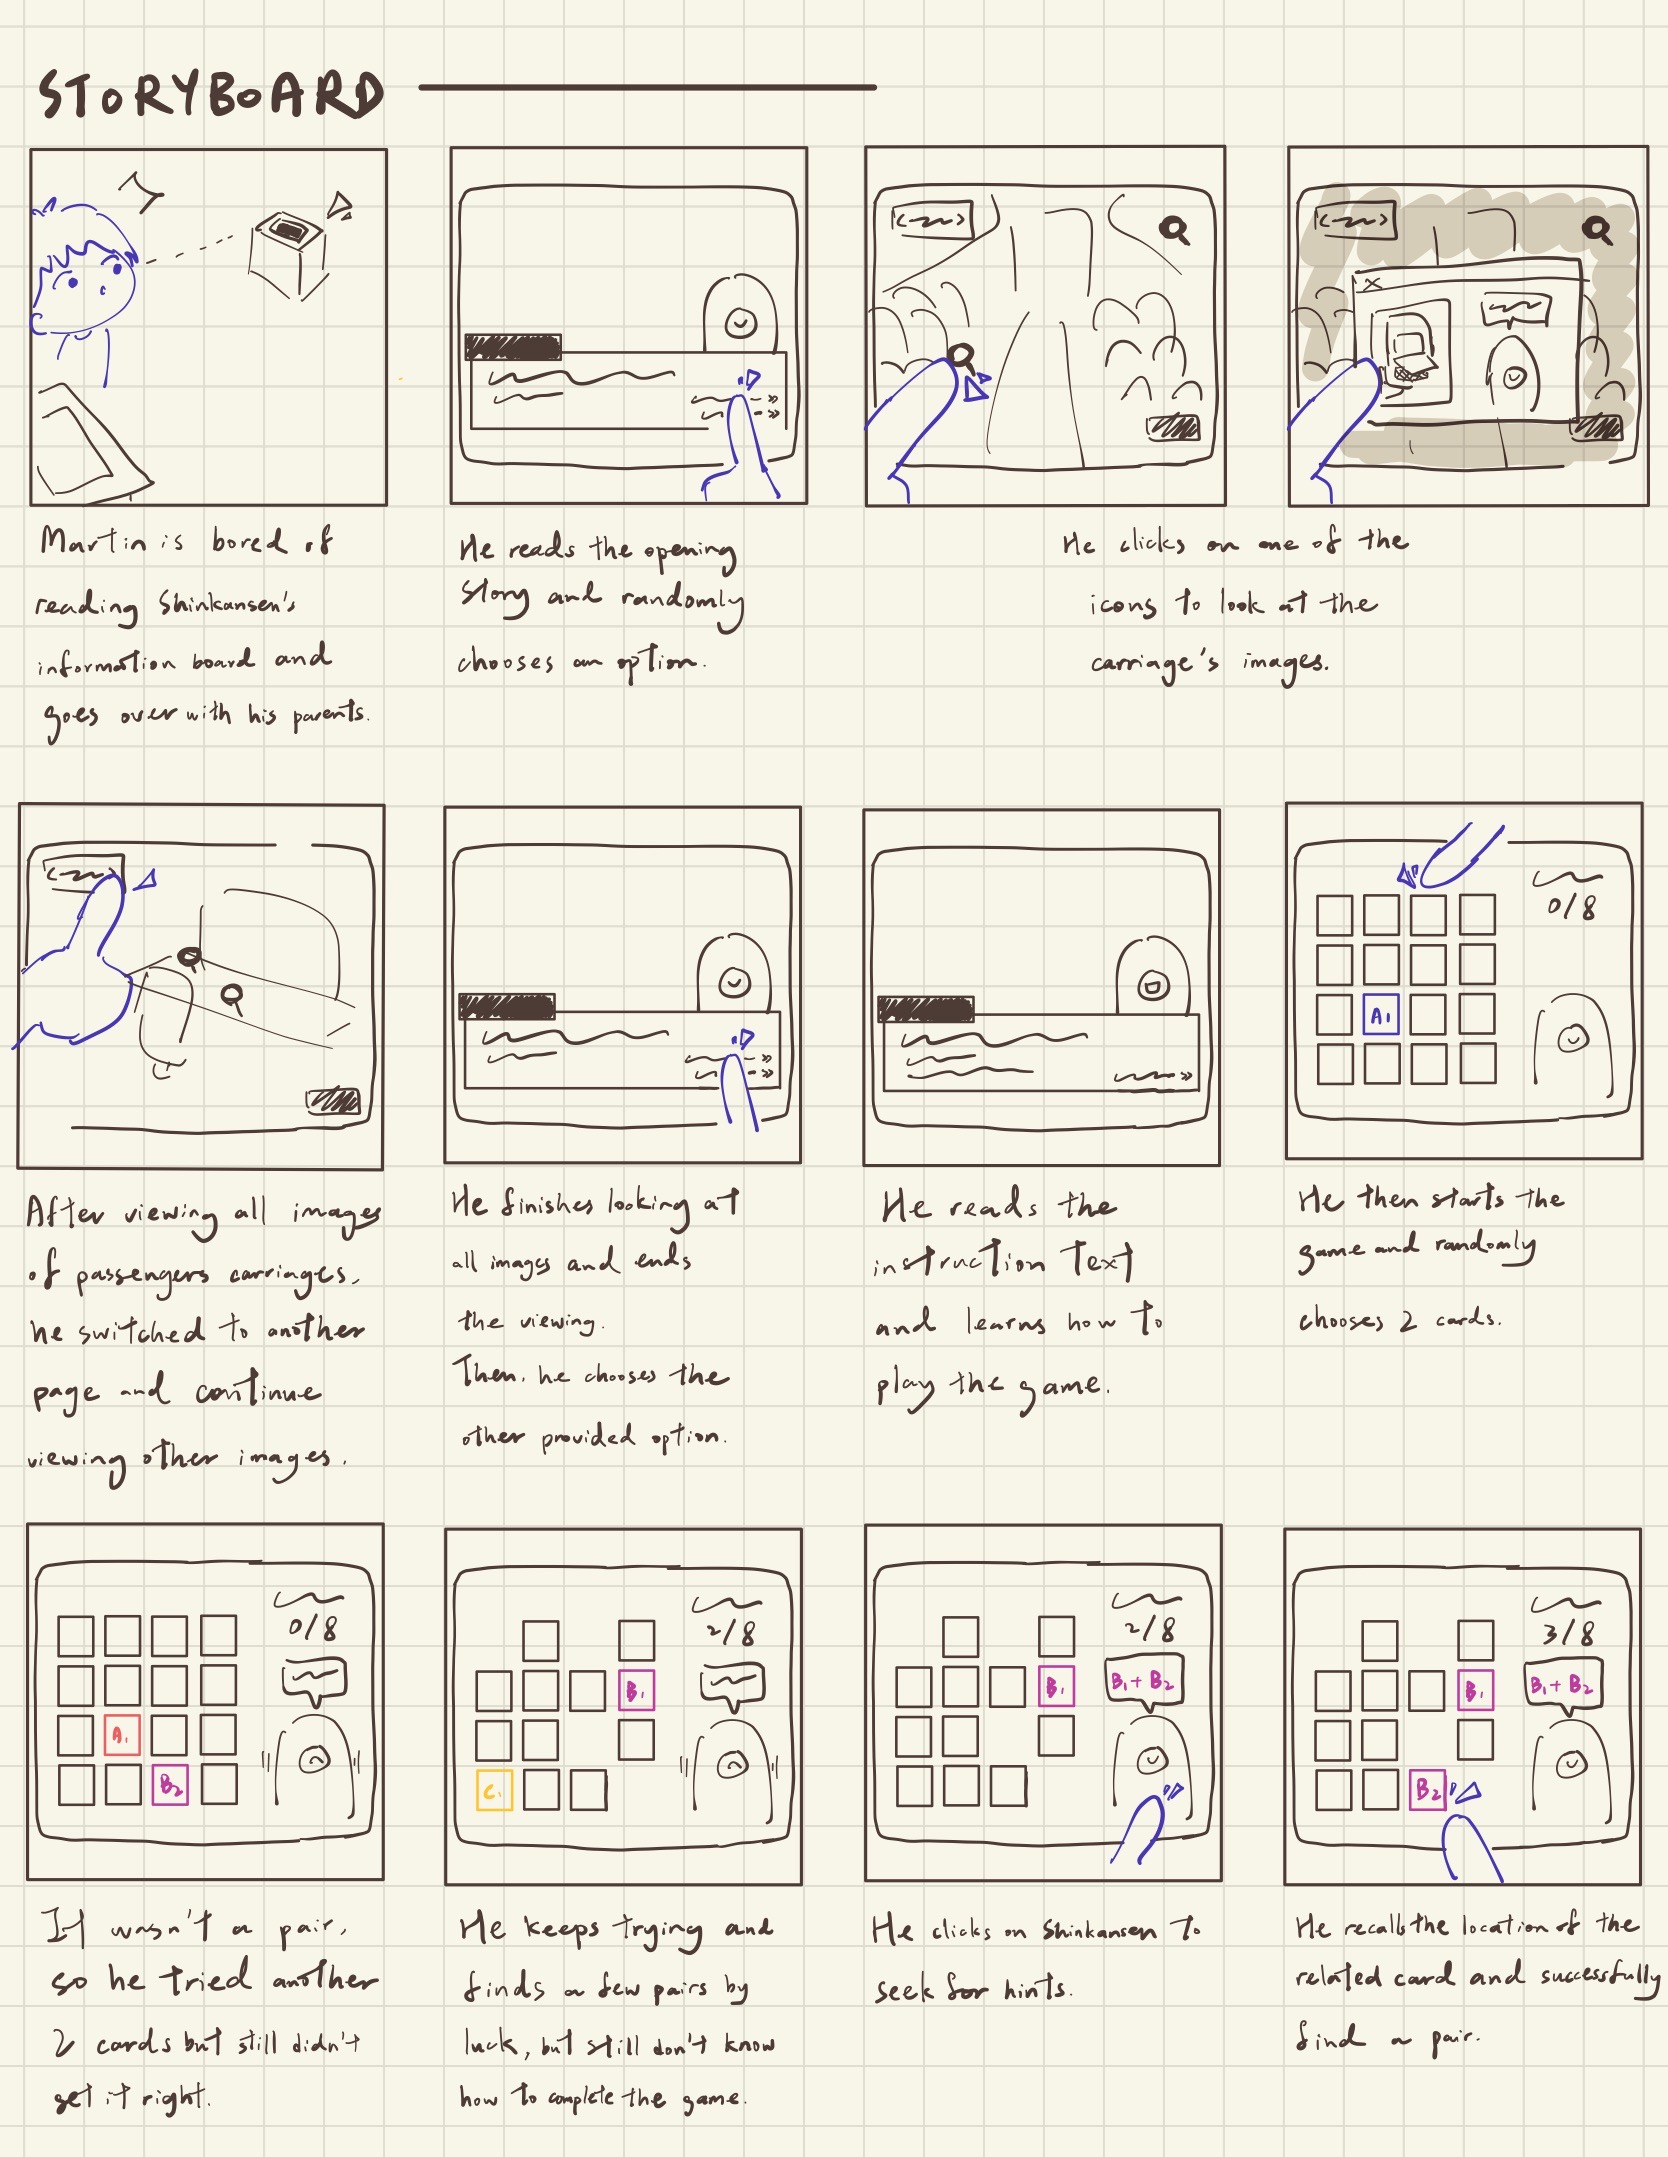 STORYBOARD
Martin is bored of
reading Shinkansen's
information board and
goes over with his parents.
He reads the opening
story and randomly
chooses an option.
He clicks on one of the
icons to look at the
carriage's images.
A1
0/8
After viewing all images
of passengers carriages,
he switched to another
page and continue
viewing other images.
He finishes looking at
all images and ends
the viewing.
Then, he chooses the
other provided option.
He reads the
instruction text
and learns how to
play the game.
He then starts the
game and randomly
chooses 2 cards.
0/8
A1
B2
2/8
B1
C1
2/8
B1
B1+B2
3/8
B1
B1+B2
B2
It wasn't a pair,
so he tried another
2 cards but still didn't
get it right.
He keeps trying and
finds a few pairs by
luck, but still don't know
how to complete the game.
He clicks on Shinkansen to
seek for hints.
He recalls the location of the
related card and successfully
find a pair.